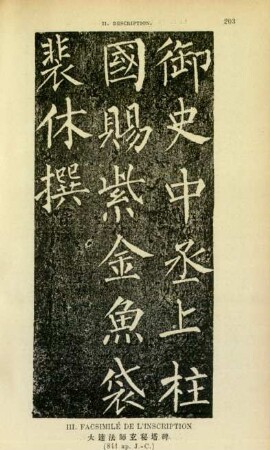 II. INSCRIPTION.
203
御史中丞上柱
國賜紫金魚袋
裴休撰
III. FACSIMILÉ DE L'INSCRIPTION
大達法師玄秘塔碑
[841 ap. J.-C.]